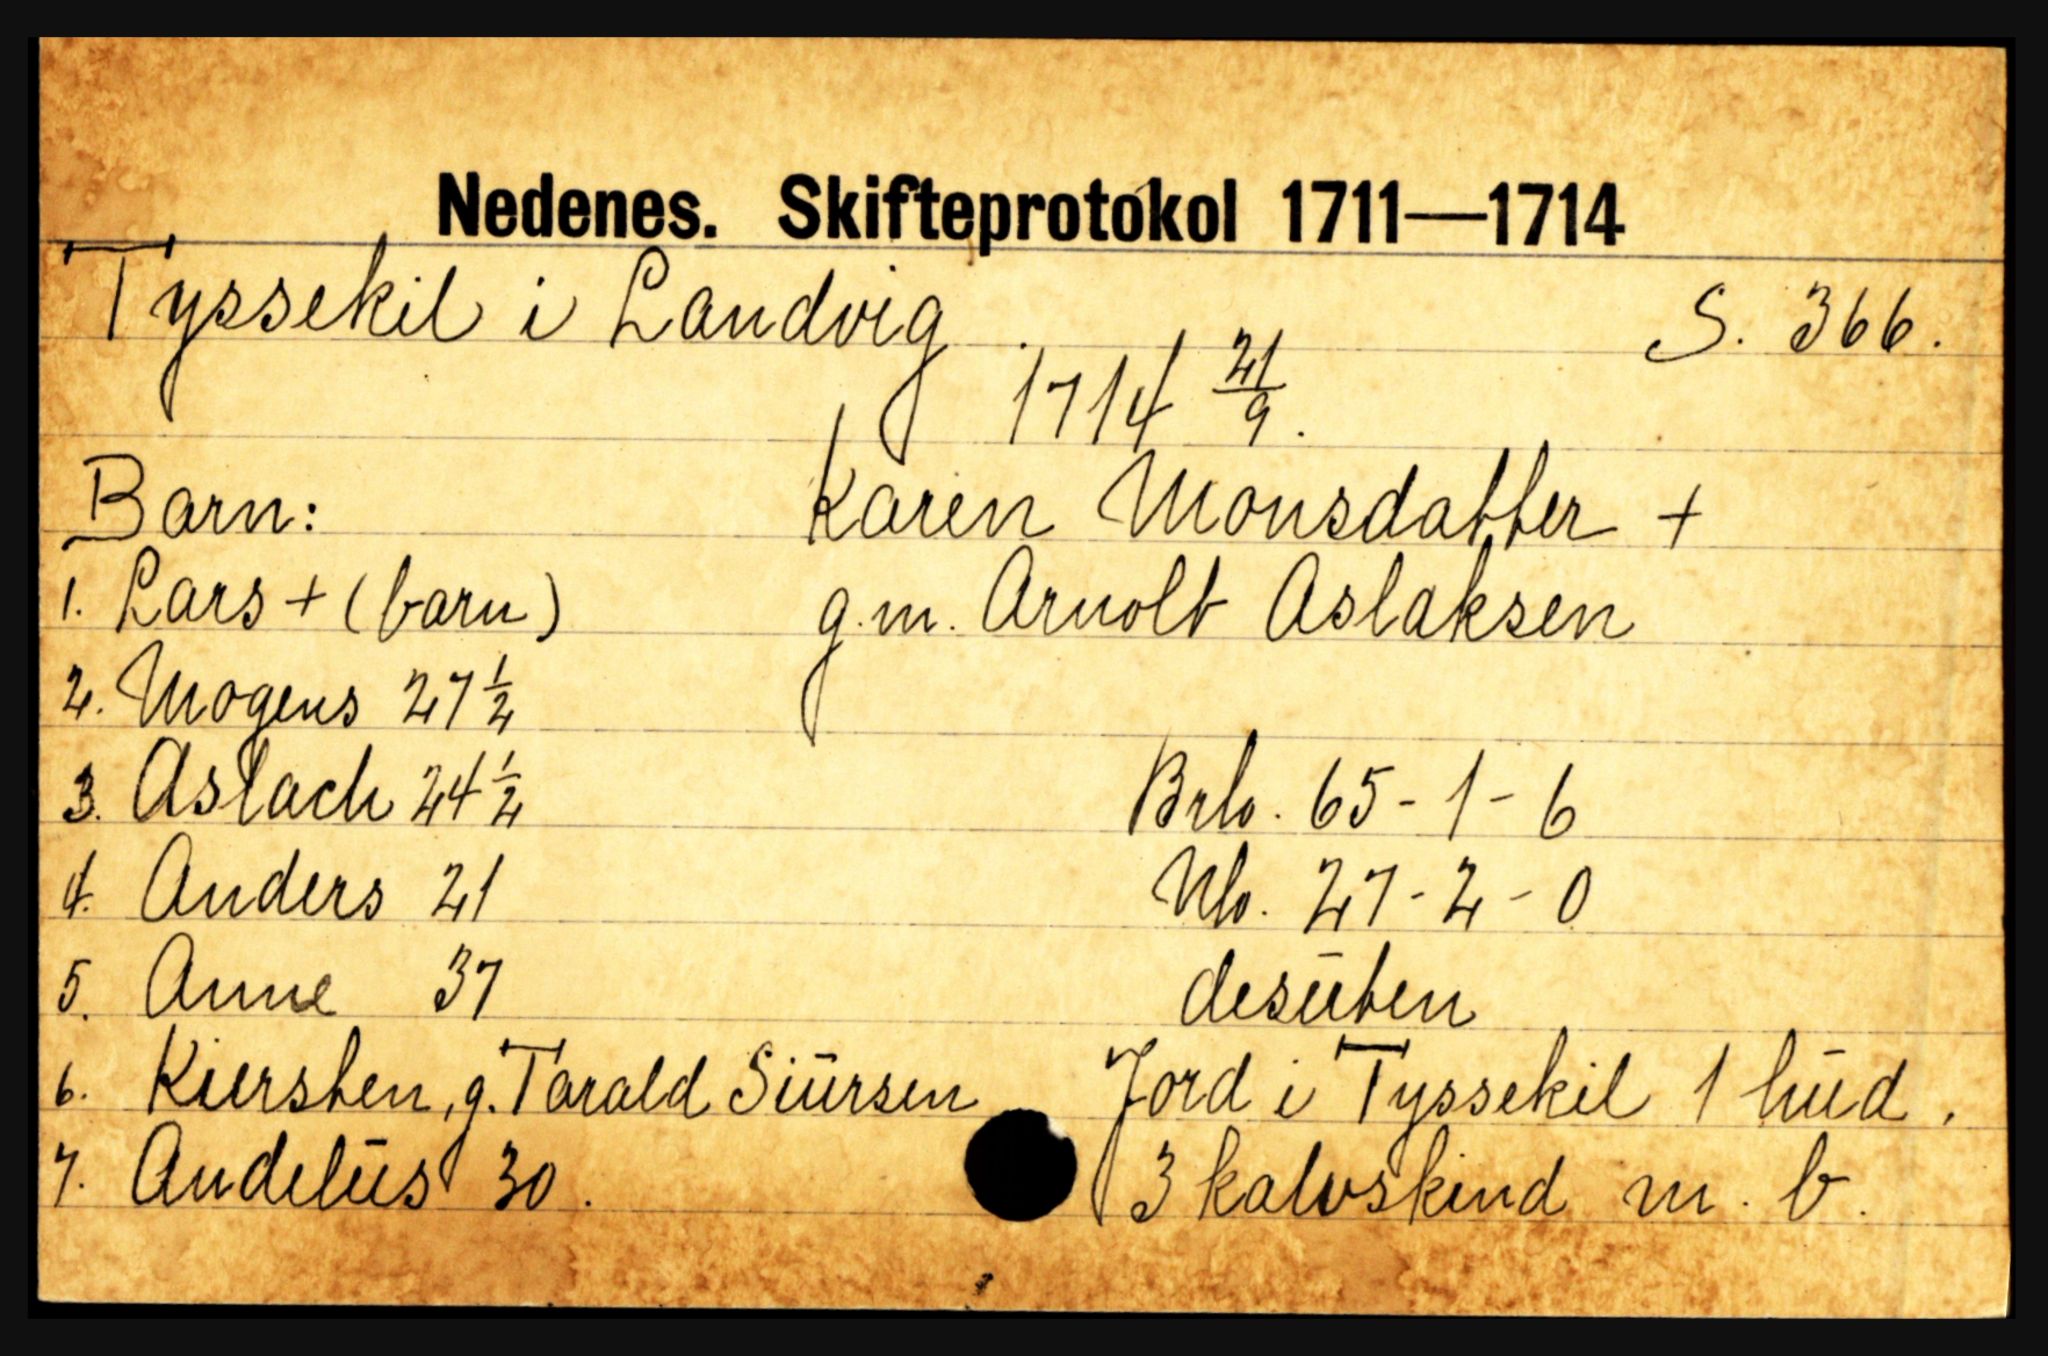 Nedenes. Skifteprotokol 1711—1714
Tyssekil i Landvig S. 366.
1714 21/9.
Barn: Karen Monsdatter +
1. Lars + (barn) g.m. Arnolt Aslaksen
2. Mogens 27 1/2
3. Aslach 24 1/2 Brb. 65-1-6
4. Anders 21 Nb. 27-2-0
5. Anne 37 desūten
6. Kiersten, g. Tarald Siūrsen Jord i Tyssekil 1 hūd.
7. Andelūs 30. 3 kalvskind m. b.